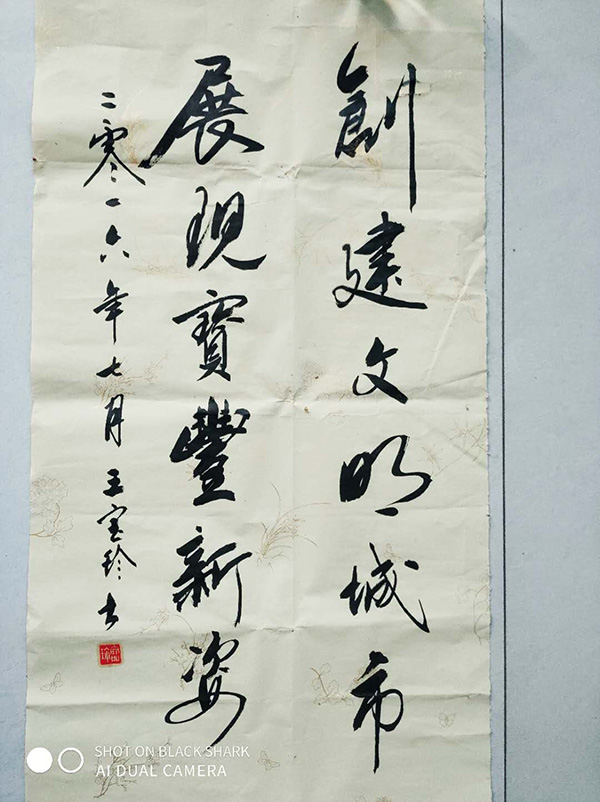 創建文明城市
展現寶豐新姿
二零一六年七月王宝玲书
SHOT ON BLACK SHARK
AI DUAL CAMERA